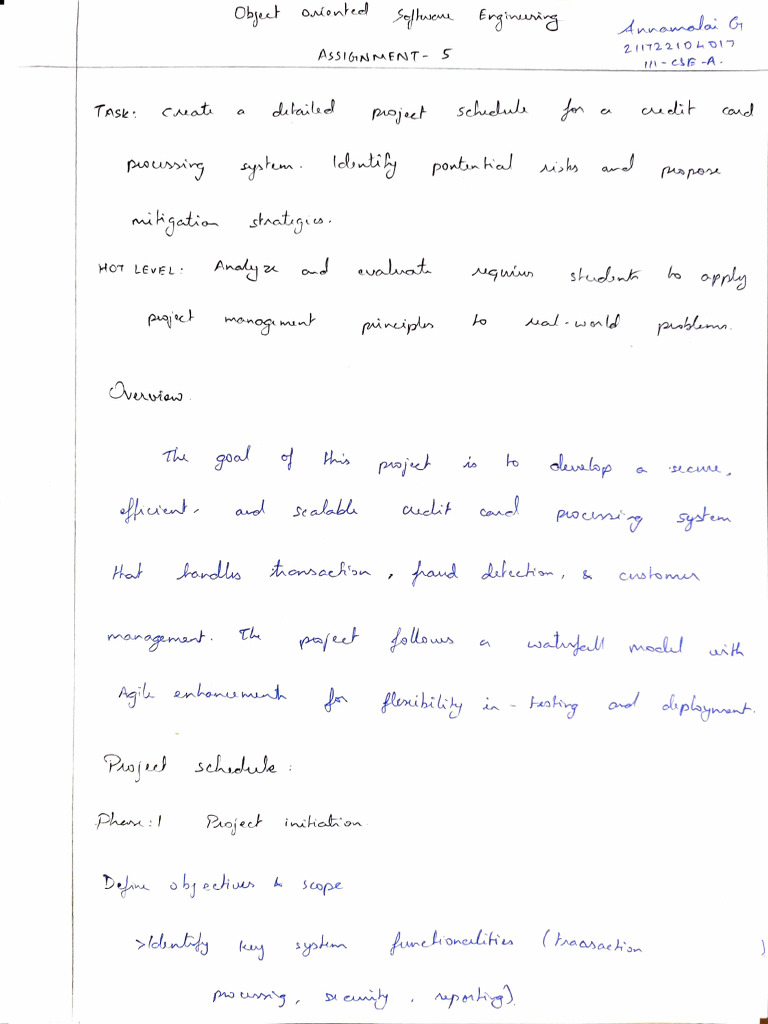 Object Oriented Software Engineering
Annamalai G
211722104017
III-CSE-A.
ASSIGNMENT-5
TASK: Create a detailed project schedule for a credit card
processing system. Identify pontential risks and propose
mitigation strategies.
HOT LEVEL: Analyze and evaluate requires students to apply
project management principles to real-world problems.
Overview.
The goal of this project is to develop a secure,
efficient, and scalable credit card processing system
that handles transaction, fraud detection, & customer
management. The project follows a waterfall model with
Agile enhancements for flexibility in-testing and deployment.
Project schedule:
Phase:1 Project initiation
Define objectives & scope
>Identify key system functionalities (transaction )
processing, security, reporting).